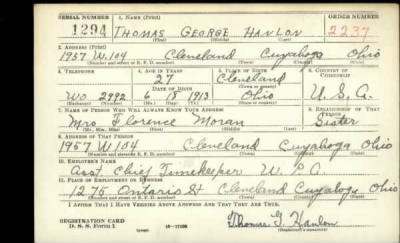 SERIAL NUMBER 1. NAME (Print) ORDER NUMBER
1294 THOMAS GEORGE HANLON 2237
(First) (Middle) (Last)
2. ADDRESS (Print)
1957 W. 104 Cleveland Cuyahoga Ohio
(Number and street or R. F. D. number) (Town) (County) (State)
3. TELEPHONE 4. AGE IN YEARS 5. PLACE OF BIRTH 6. COUNTRY OF CITIZENSHIP
27 Cleveland
DATE OF BIRTH (Town or county)
WO 2992 6 18 1913 Ohio U.S.A.
(Exchange) (Number) (Mo.) (Day) (Yr.) (State or country)
7. NAME OF PERSON WHO WILL ALWAYS KNOW YOUR ADDRESS 8. RELATIONSHIP OF THAT PERSON
Mrs Florence Moran Sister
(Mr., Mrs., Miss) (First) (Middle) (Last)
9. ADDRESS OF THAT PERSON
1957 W 104 Cleveland Cuyahoga Ohio
(Number and street or R. F. D. number) (Town) (County) (State)
10. EMPLOYER'S NAME
Asst. Chief Timekeeper W.P.A.
11. PLACE OF EMPLOYMENT OR BUSINESS
1275 Ontario St Cleveland Cuyahoga Ohio
(Number and street or R. F. D. number) (Town) (County) (State)
I AFFIRM THAT I HAVE VERIFIED ABOVE ANSWERS AND THAT THEY ARE TRUE.
REGISTRATION CARD
D. S. S. Form 1 (over) Thomas G. Hanlon
(Registrant's signature)